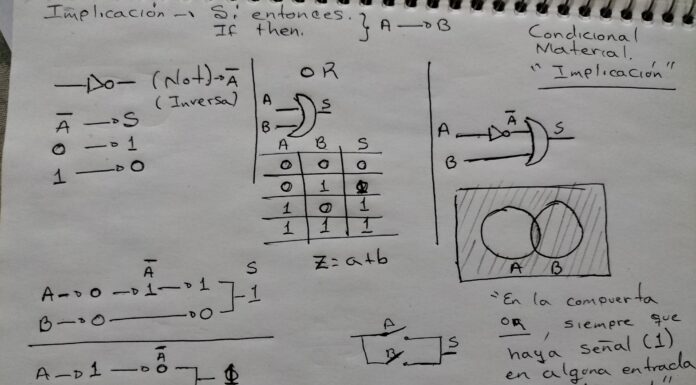 Implicación → Si entonces.
If then. } A → B
Condicional
Material.
"Implicación"
(Not) → A̅
(Inversa)
A̅ → S
0 → 1
1 → 0
OR
A
B
S
A B S
0 0 0
0 1 1
1 0 1
1 1 1
Z = a+b
A
A̅
S
B
A B
A̅ S
A → 0 → 1 → 1
1
B → 0 0
A̅
A → 1 → 0
A
B
S
"En la compuerta
OR, siempre que
haya señal (1)
en alguna entrada